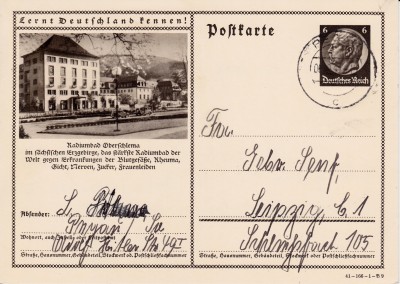 Lernt Deutschland kennen!
Postkarte
6 6
Deutsches Reich
c
Radiumbad Oberschlema
im sächsischen Erzgebirge, das stärkste Radiumbad der
Welt gegen Erkrankungen der Blutgefäße, Rheuma,
Gicht, Nerven, Zucker, Frauenleiden
Absender:
Adolf Hitler Str 49 I
Wohnort, auch Zustell- oder Leitpostamt
Straße, Hausnummer, Gebäudeteil, Stockwerk od. Postschließfachnummer
Gebr. Senf,
Leipzig, C 1
105
Straße, Hausnummer, Gebäudeteil, Stockwerk od. Postschließfachnummer